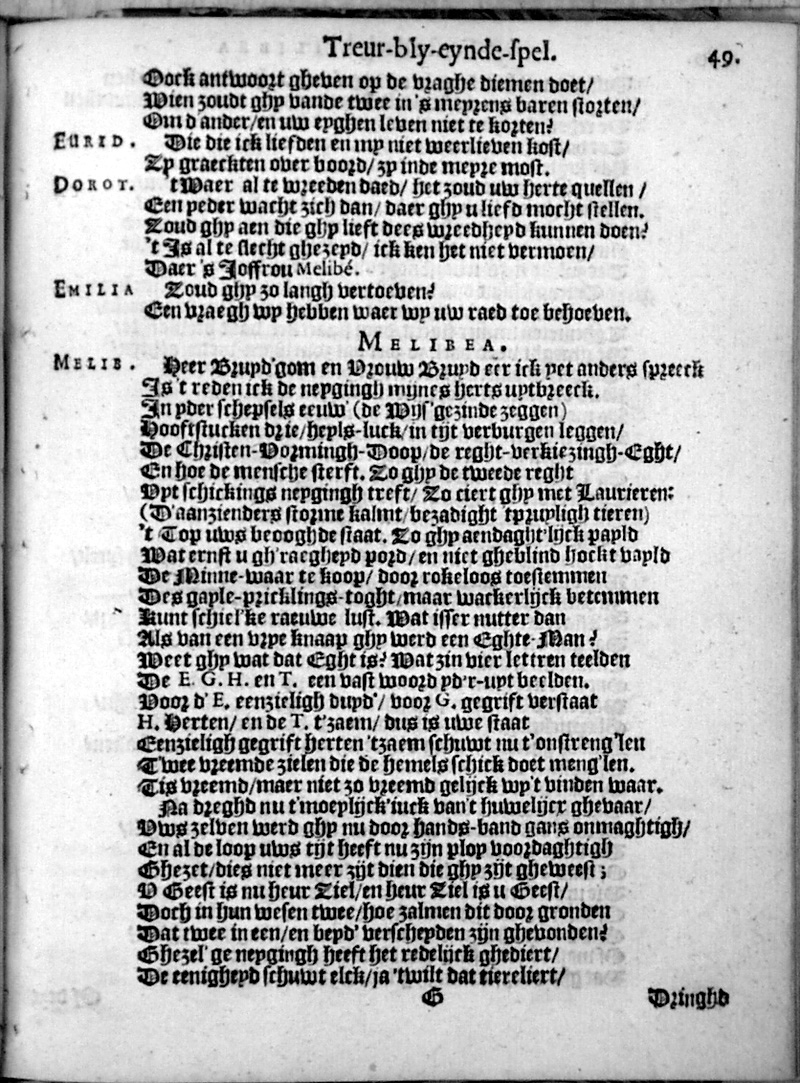 Treur-bly-eynde-spel. 49.
Oock antwoort gheven op de vraghe diemen doet/
Wien zoudt ghy vande twee in 's meyrens baren storten/
Om d ander/ en uw eyghen leven niet te korten?
EURID. Die die ick liefden en my niet weerlieven kost/
Zy graeckten over boord/ zy inde meyre most.
DOROT. 't Waer al te wreeden daed/ het zoud uw herte quellen /
Een yeder wacht zich dan/ daer ghy u liefd mocht stellen.
Zoud ghy aen die ghy lieft dees wreedheyd kunnen doen?
't Is al te slecht ghezeyd/ ick ken het niet vermoen/
Daer 's Joffrou Melibé.
EMILIA Zoud ghy zo langh vertoeven?
Een vraegh wy hebben waer wy uw raed toe behoeven.
MELIBEA.
MELIB. Heer Bruyd'gom en Vrouw Bruyd eer ick yet anders spreeck
Is 't reden ick de neygingh mijnes herts uytbreeck.
In yder schepsels eeuw' (de Wijs'gezinde zeggen)
Hooftstucken drie/ heyls-luck/ in tijt verburgen leggen/
De Christen-Vormingh-Doop/ de reght-verkiezingh-Eght/
En hoe de mensche sterft. Zo ghy de tweede reght
Uyt schickings neygingh treft/ Zo ciert ghy met Laurieren:
(D'aanzienders storme kalmt/ bezadight 'tpruyligh tieren)
't Top uws beooghde staat. Zo ghy aendaght'lijck payld
Wat ernst u gh'raegheyd pord/ en niet gheblind hockt vayld
De Minne-waar te koop/ door rokeloos toestemmen
Des gaple-pricklings-toght/ maar wackerlijck betemmen
Kunt schiel'ke raeuwe lust. Wat isser nutter dan
Als van een vrye knaap ghy werd een Eghte-Man?
Weet ghy wat dat Eght is? Wat zin vier lettren teelden
De E. G. H. en T. een vast woord yd'r-uyt beelden.
Voor d' E. eenzieligh duyd'/ voor G. gegrift verstaat
H. Herten/ en de T. t'zaem/ dus is uwe staat
Eenzieligh gegrift herten 'tzaem schuwt nu t'onstreng'len
Twee vreemde zielen die de hemels schick doet meng'len.
Tis vreemd/ maer niet zo vreemd gelijck wy't vinden waar.
Na dreghd nu t'moeylijck'iuck van't huwelijcx ghevaar/
Uws zelven werd ghy nu door hands-band gans onmaghtigh/
En al de loop uws tijt heeft nu zijn ploy voordaghtigh
Ghezet/ dies niet meer zijt dien die ghy zijt gheweest;
U Geest is nu heur Ziel/ en heur Ziel is u Geest/
Doch in hun wesen twee/ hoe zalmen dit door gronden
Dat twee in een/ en beyd' verscheyden zijn ghevonden?
Ghezel'ge neygingh heeft het redelijck ghediert/
De eenigheyd schuwt elck/ ja 'twilt dat tiereliert/
G Dringhd